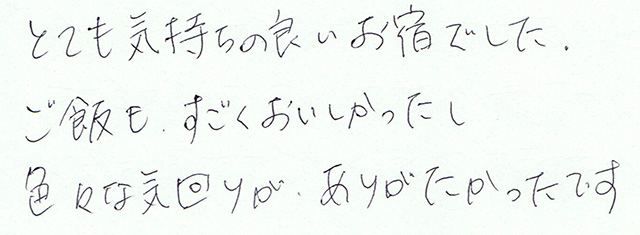 とても気持ちの良いお宿でした.
ご飯も、すごくおいしかったし
色々な気回りが、ありがたかったです